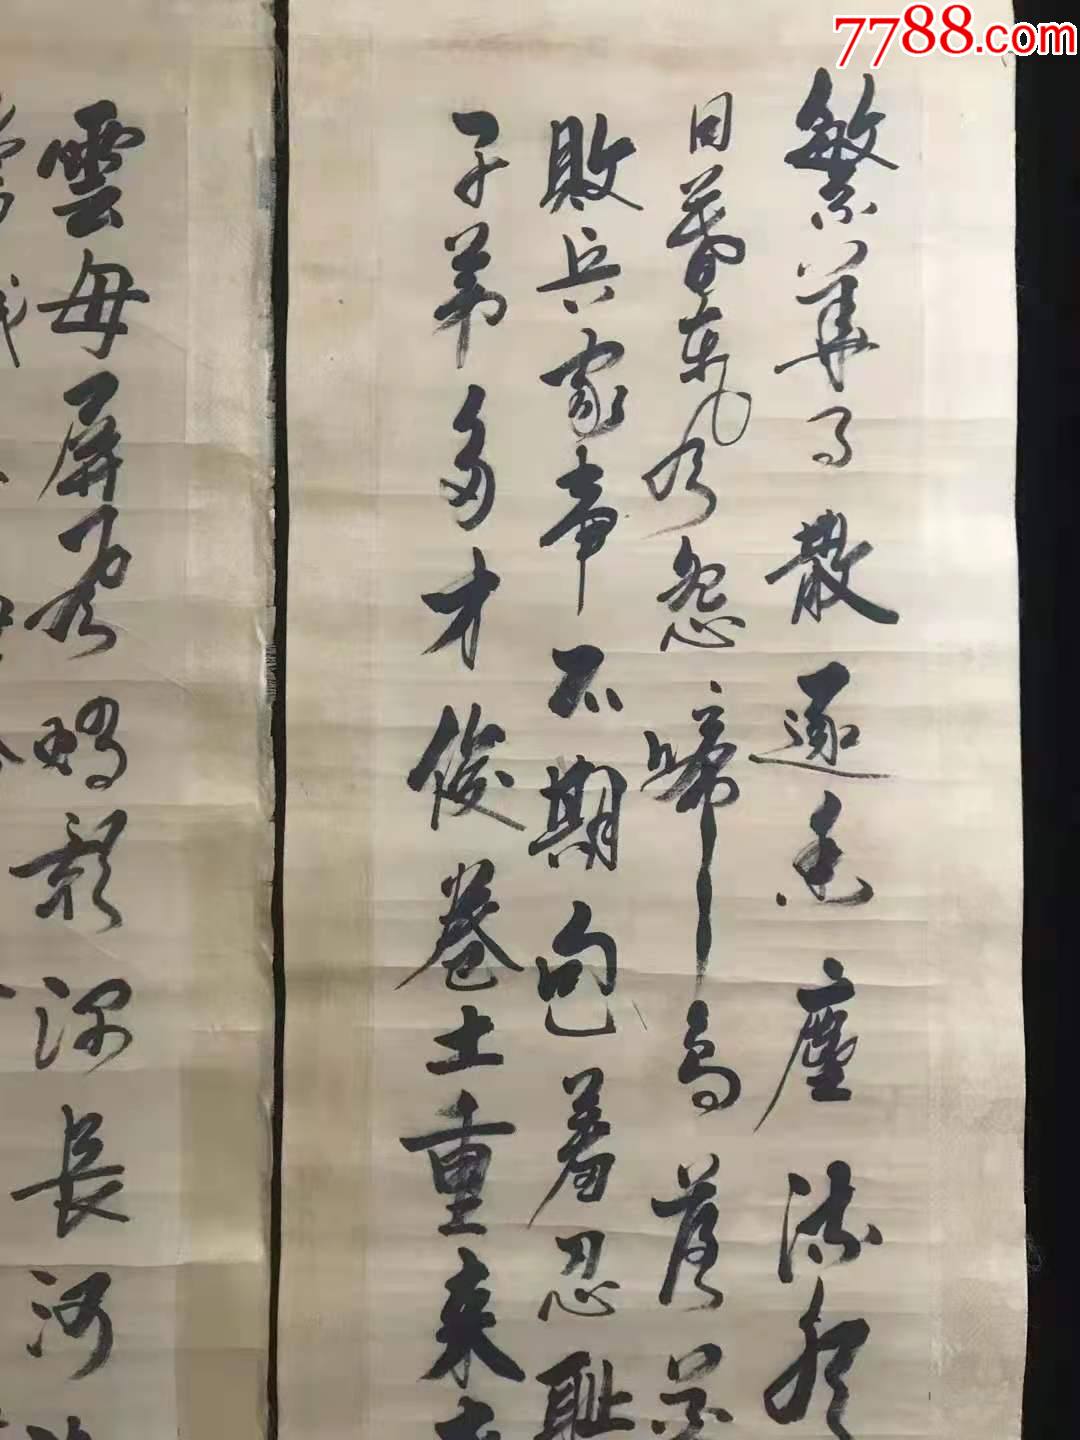 繁華事散逐香塵流
日暮東風怨啼鳥落花
敗兵家事不期包羞忍耻
子弟多才俊卷土重来
雲母屏風燭影深長河
7788.com